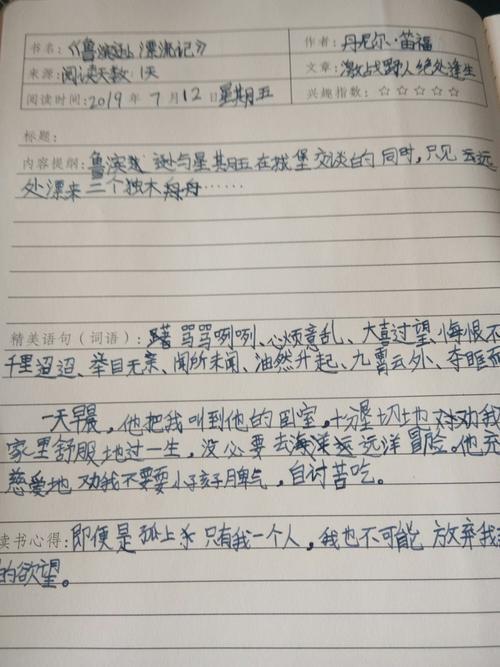 书名:《鲁滨逊漂流记》 作者:丹尼尔·笛福
来源:阅读天数:1天 文章:激战野人绝处逢生
阅读时间:2019年7月12日星期五 兴趣指数:☆☆☆☆☆
标题:
内容提纲:鲁滨逊与星期五在城堡交谈的同时,只见远
处漂来三个独木舟……
精美语句(词语): 骂骂咧咧、心烦意乱、大喜过望、悔恨不
千里迢迢、举目无亲、闻所未闻、油然升起、九霄云外、夺眶而
一天早晨,他把我叫到他的卧室,十分恳切地对劝我
家里舒服地过一生,没必要去海洋远洋冒险。他充
慈爱地劝我不要耍小孩子脾气,自讨苦吃。
读书心得:即便是孤岛上只有我一个人,我也不可能放弃我
的欲望。